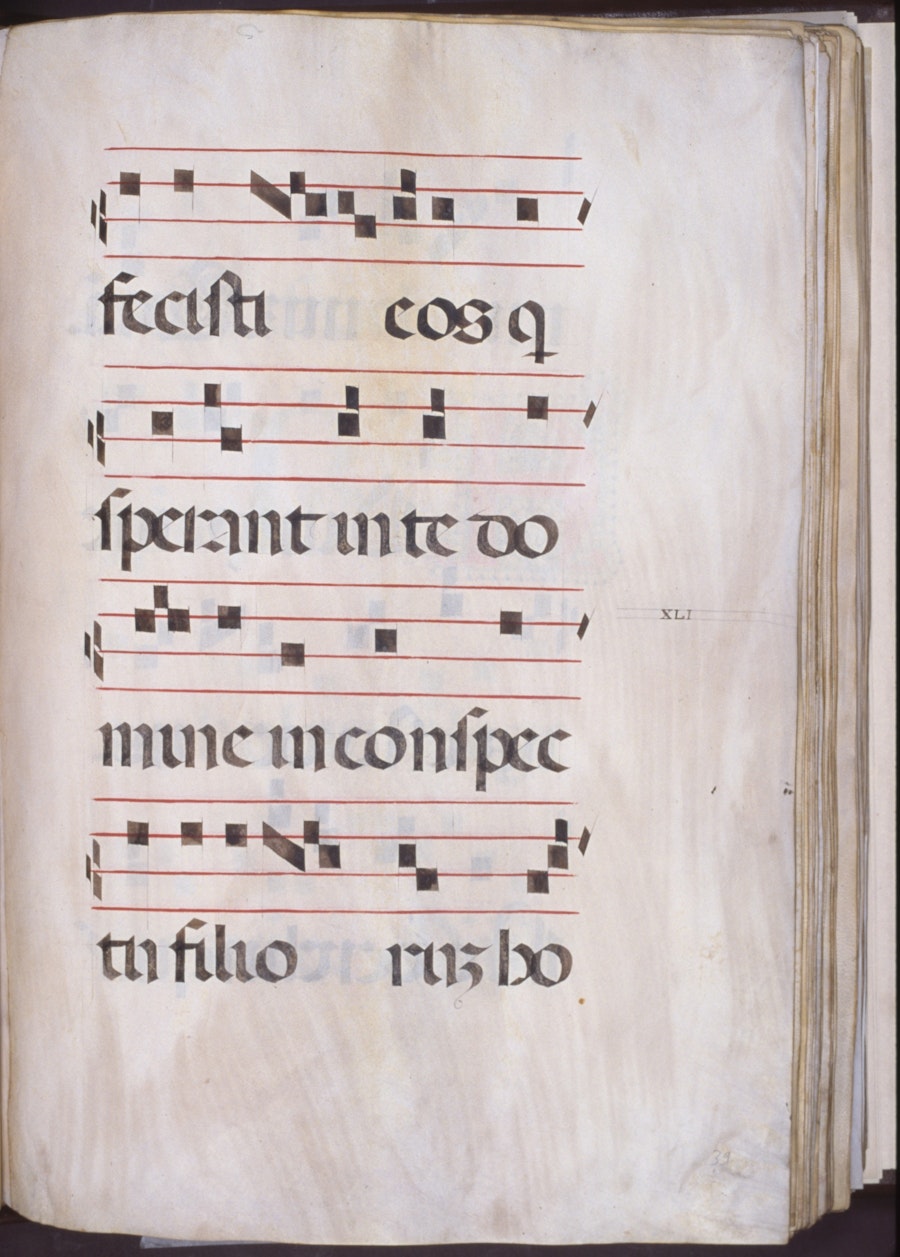 fecisti eos q
sperant in te do
mine in conspec
XLI
tu filio ruz ho
39